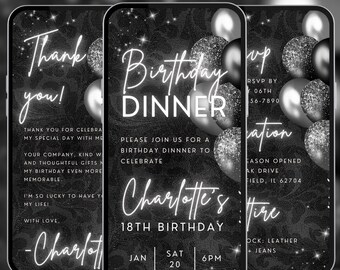 Thank
you!
THANK YOU FOR CELEBRA
MY SPECIAL DAY WITH ME
YOUR COMPANY, KIND W
AND THOUGHTFUL GIFTS M
MY BIRTHDAY EVEN MORE
MEMORABLE.
I'M SO LUCKY TO HAVE YO
MY LIFE!
WITH LOVE,
-Charlotte
Birthday
DINNER
PLEASE JOIN US FOR A
BIRTHDAY DINNNER TO
CELEBRATE
Charlotte's
18TH BIRTHDAY
JAN
SAT
20
6PM
vp
RSVP BY
Y 06TH
36-7890
cation
EASON OPENED
OAK DRIVE
FIELD, IL 62704
tire
OCK: LEATHER
+ JEANS